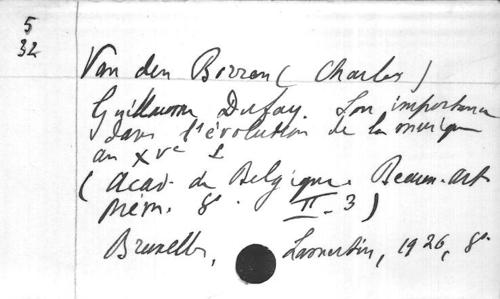 5
32
Van den Borren (Charles)
Guillaume Dufay. Son importance
dans l'évolution de la musique
au XVe s.
(Acad. de Belgique. Beaux-arts
Mém. 8°. II-3)
Bruxelles, Lamertin, 1926, 8°.